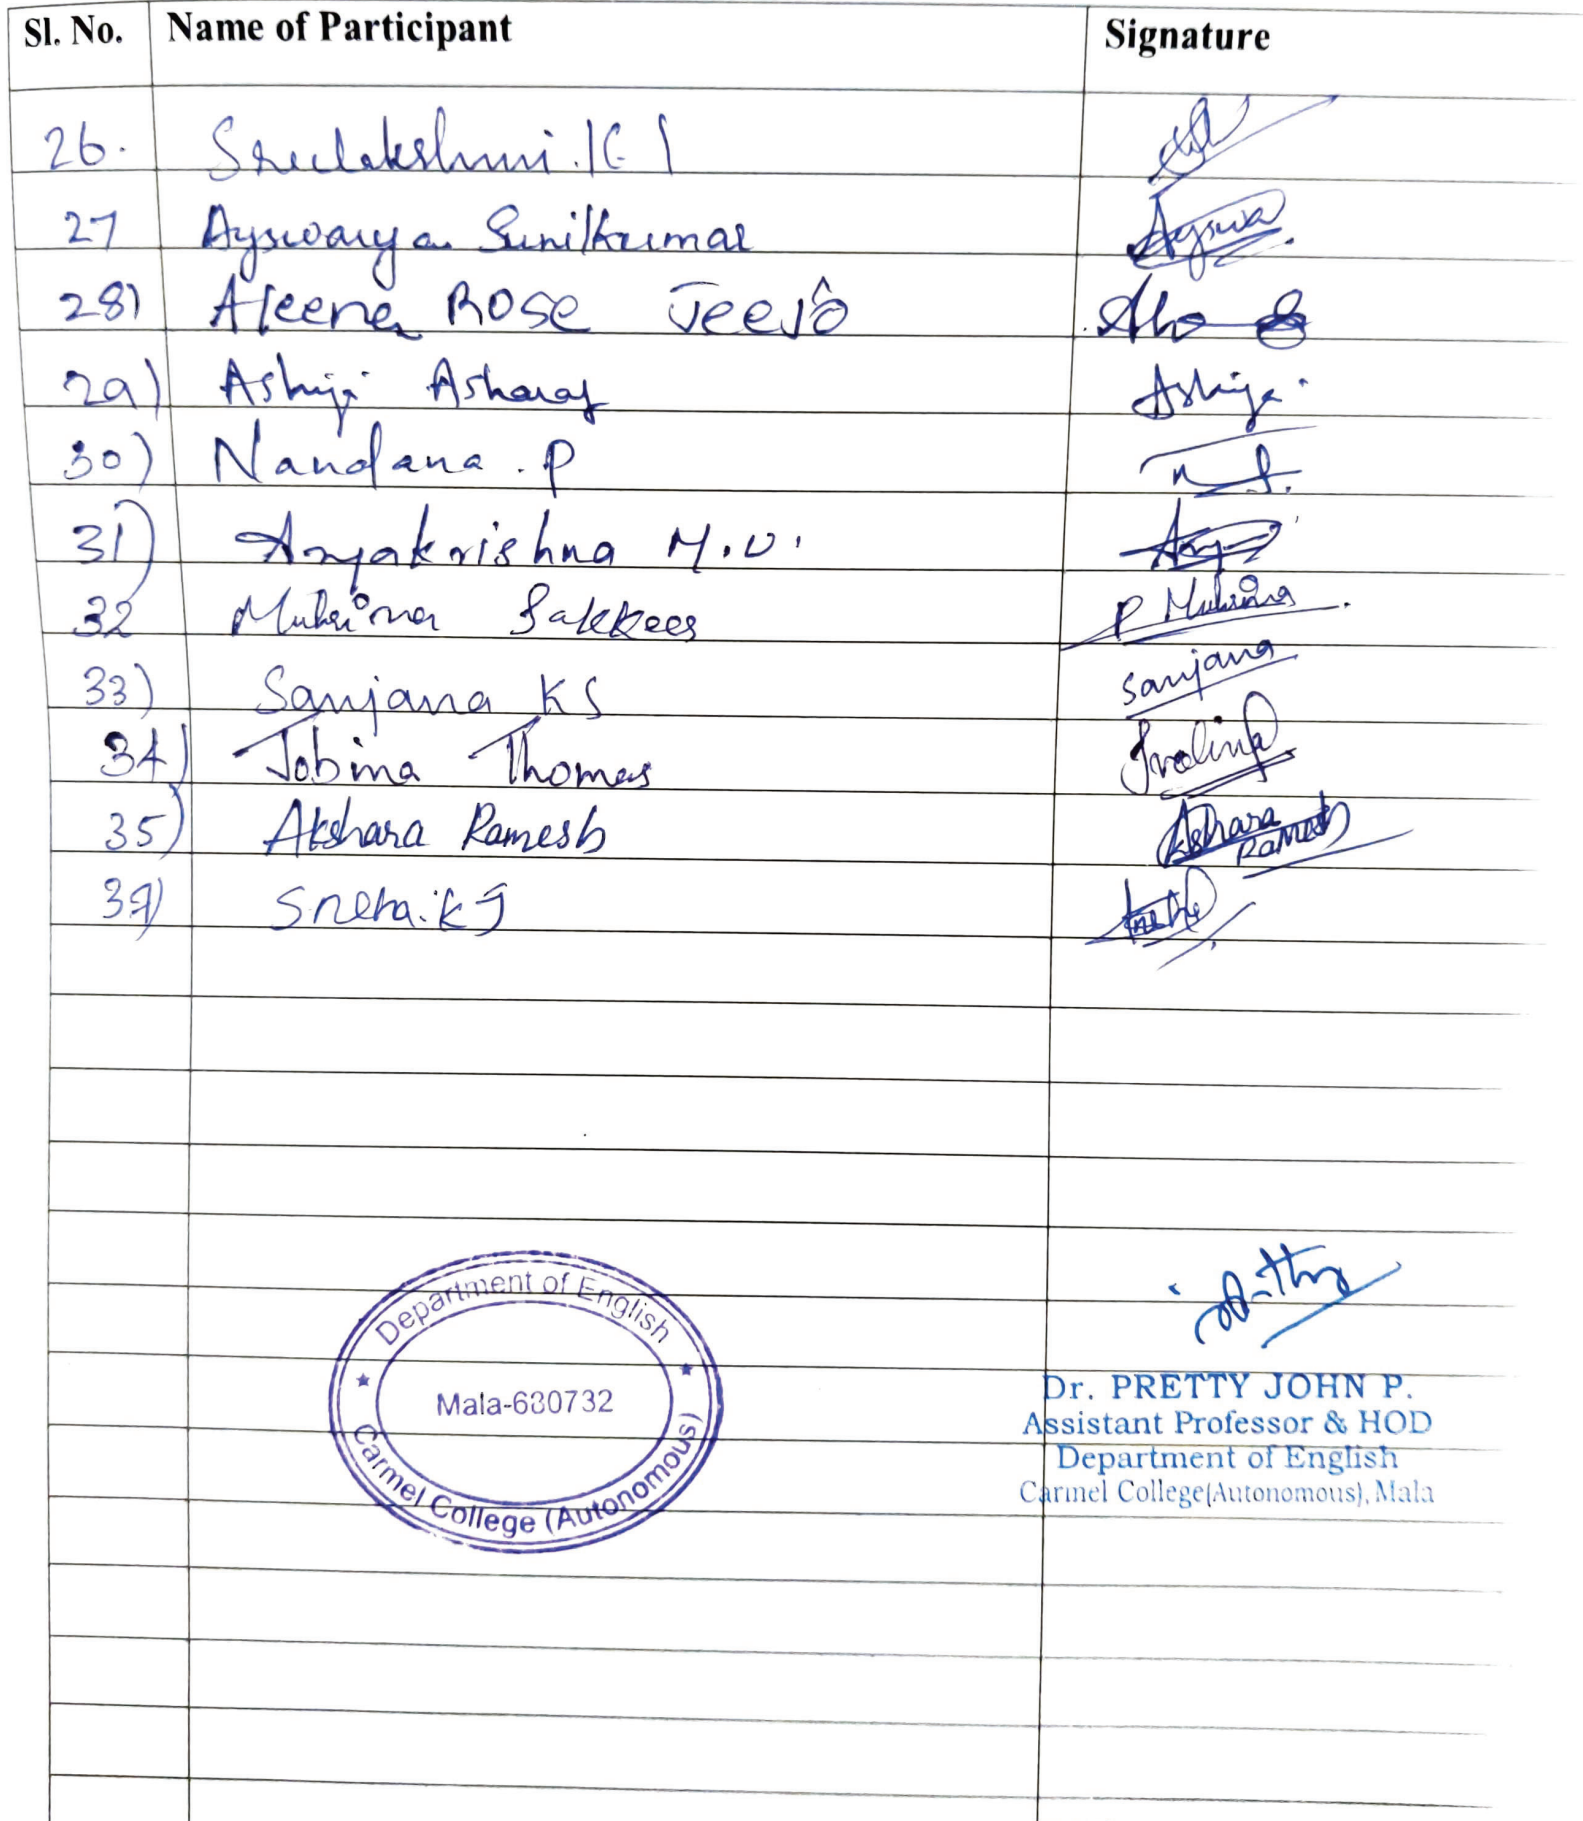 Sl. No. Name of Participant Signature
26. Sreelakshmi. K
27 Ayswarya Sunilkumar Ayswa
28) Aleena ROSE Jeejo
29) Ashija Asharaf Ashija
30) Nandana . P
31) Anjakrishna M.U.
32 Muhsina Sakkeer P Muhsina
33) Sanjana KS Sanjana
34) Jobina Thomas
35) Akshara Ramesh Akshara Ramesh
37) Sneha. K J Sneha
Department of English
Mala-680732
Carmel College (Autonomous)
Dr. PRETTY JOHN P.
Assistant Professor & HOD
Department of English
Carmel College(Autonomous), Mala